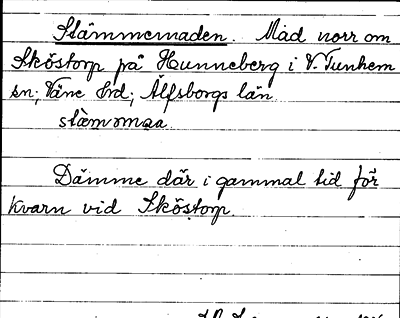 Stämmemaden. Mad norr om
Sköstorp på Hunneberg i V. Tunhem
sn; Väne hrd; Älfsborgs län.
Dämme där i gammal tid för
kvarn vid Sköstorp.